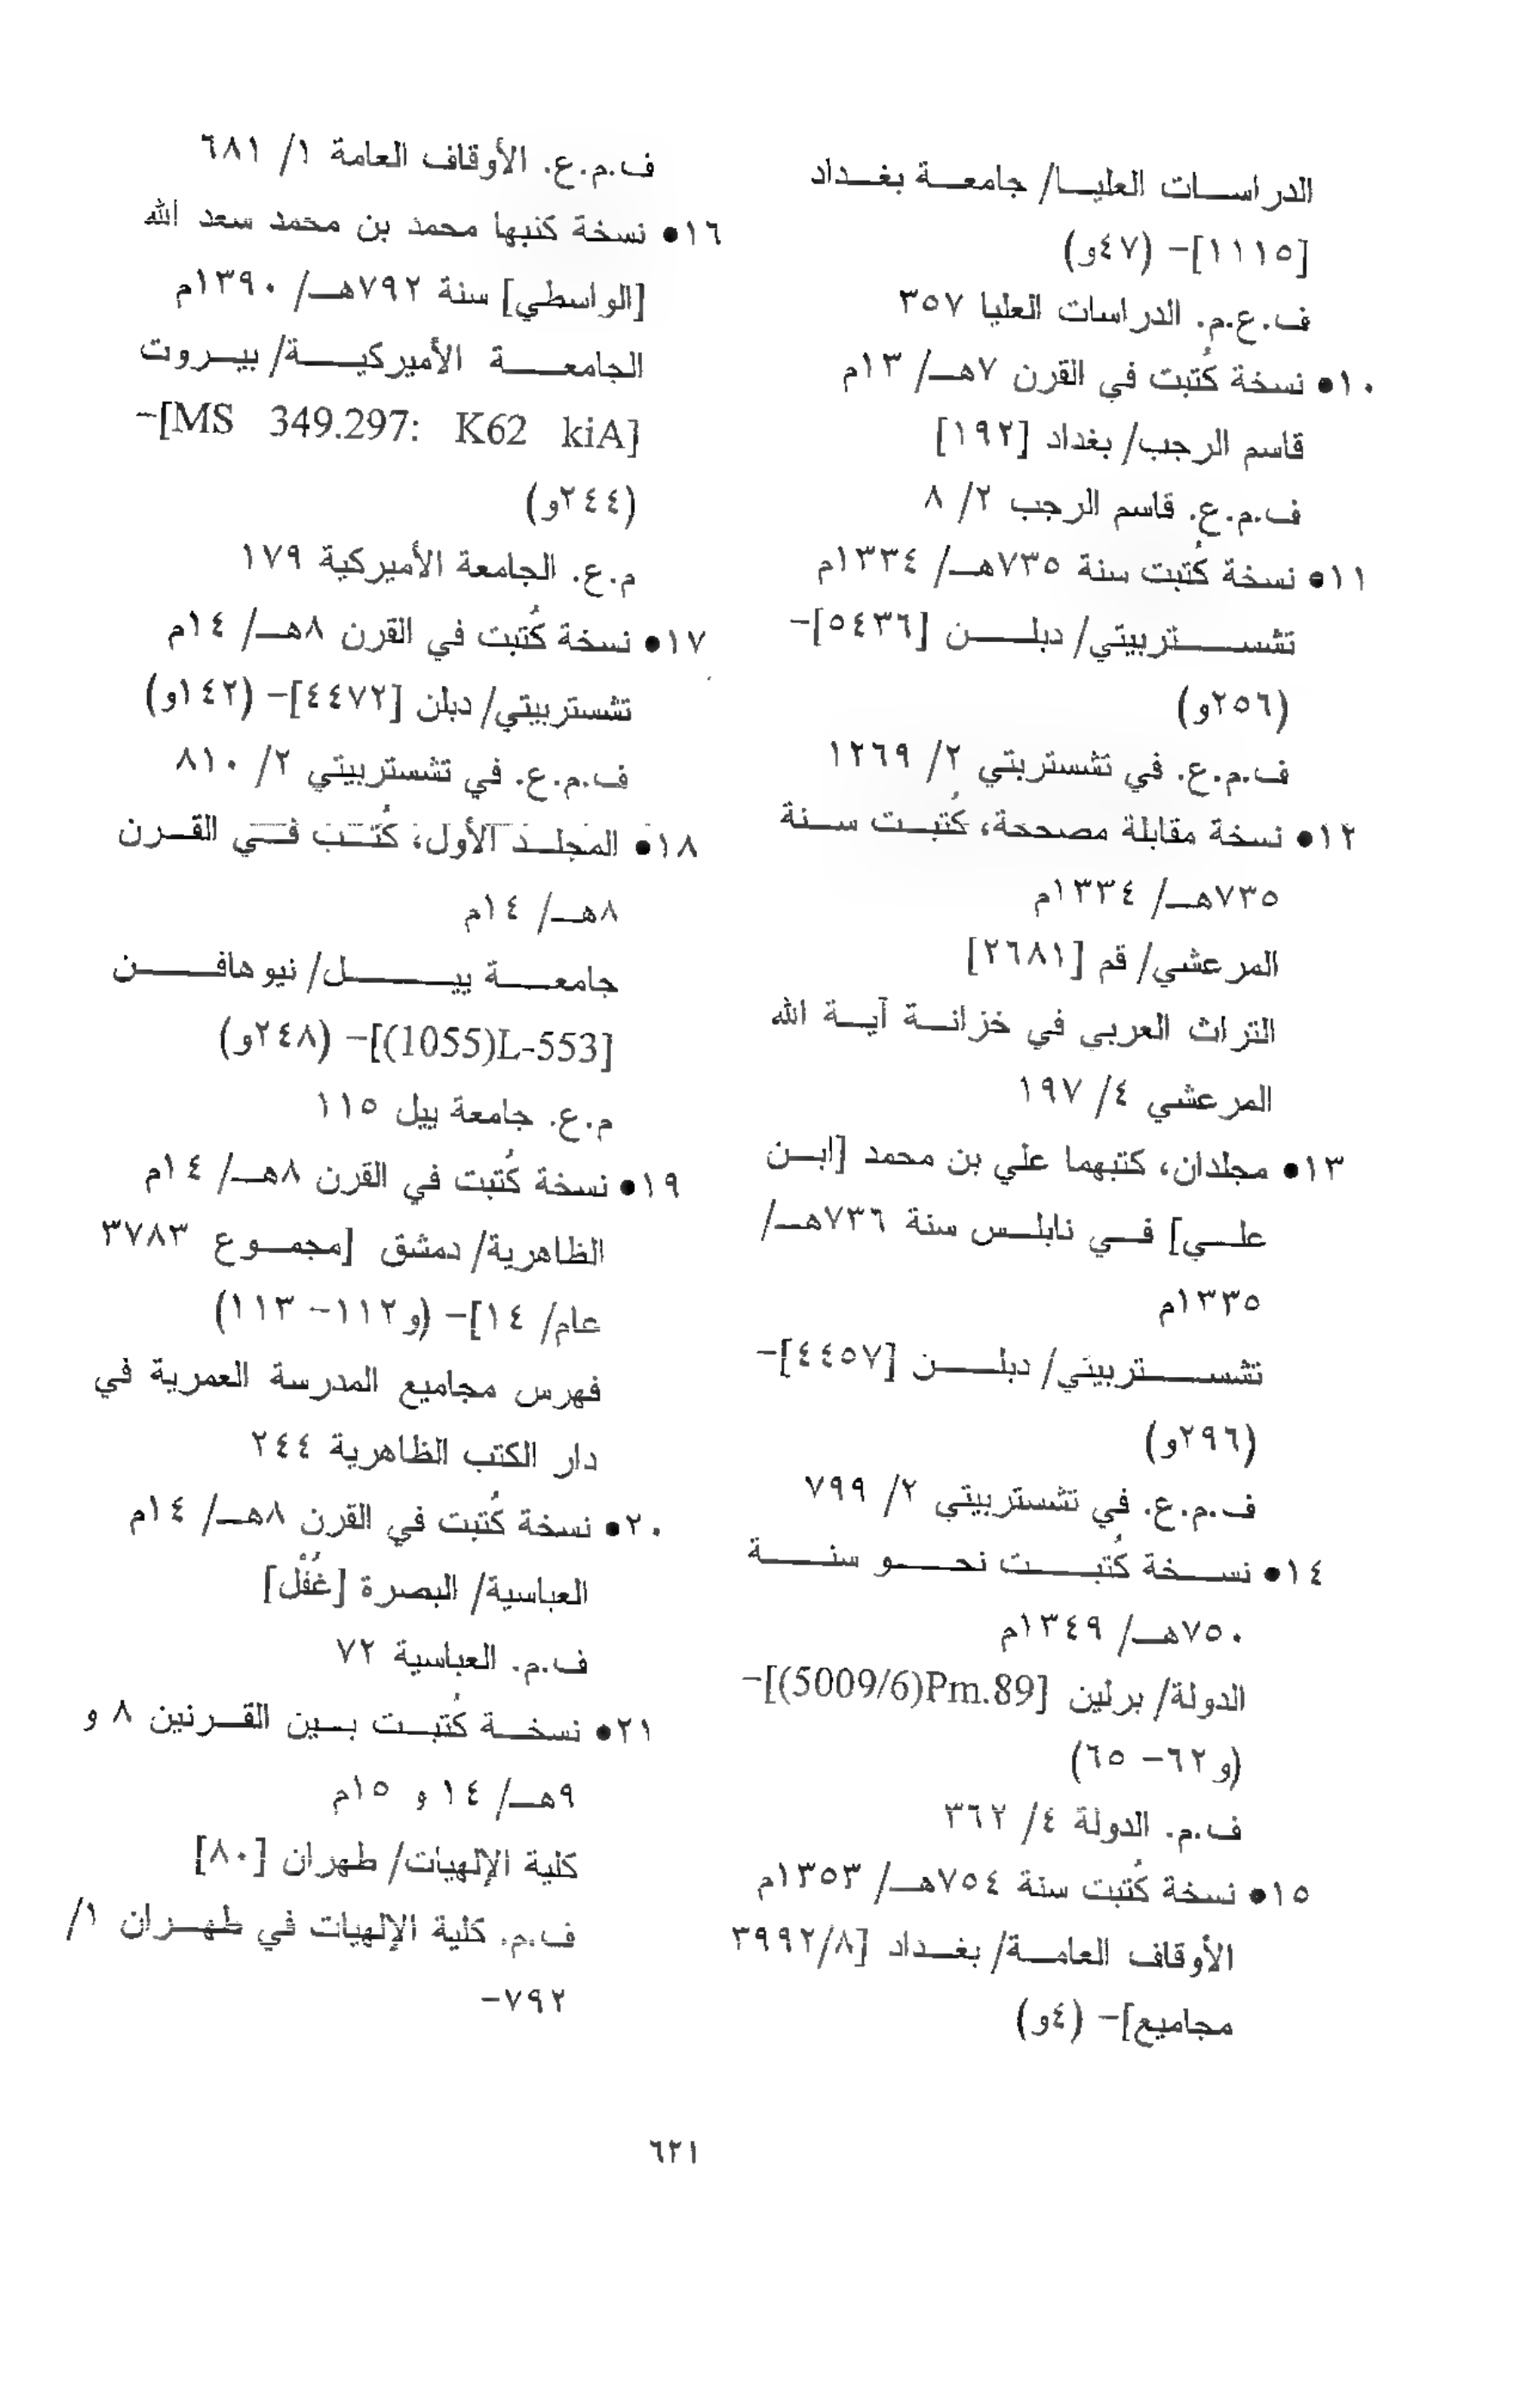 الدراسات العليا/ جامعة بغداد
[١١١٥]- (٤٧و)
ف.ع.م. الدراسات العليا ٣٥٧
١٠● نسخة كُتبت في القرن ٧هـ/ ١٣م
قاسم الرجب/ بغداد [١٩٢]
ف.م.ع. قاسم الرجب ٢/ ٨
١١● نسخة كُتبت سنة ٧٣٥هـ/ ١٣٣٤م
تشستربيتي/ دبلن [٥٤٣٦]-
(٢٥٦و)
ف.م.ع. في تشستربتي ٢/ ١٢٦٩
١٢● نسخة مقابلة مصححة، كُتبت سنة
٧٣٥هـ/ ١٣٣٤م
المرعشي/ قم [٢٦٨١]
التراث العربي في خزانة آية الله
المرعشي ٤/ ١٩٧
١٣● مجلدان، كتبهما علي بن محمد [ابن
علي] في نابلس سنة ٧٣٦هـ/
١٣٣٥م
تشستربيتي/ دبلن [٤٤٥٧]-
(٢٩٦و)
ف.م.ع. في تشستربيتي ٢/ ٧٩٩
١٤● نسخة كُتبت نحو سنة
٧٥٠هـ/ ١٣٤٩م
الدولة/ برلين [5009/6)Pm.89)]-
(و٦٢- ٦٥)
ف.م. الدولة ٤/ ٣٦٢
١٥● نسخة كُتبت سنة ٧٥٤هـ/ ١٣٥٣م
الأوقاف العامة/ بغداد [٣٩٩٢/٨
مجاميع]- (٤و)
ف.م.ع. الأوقاف العامة ١/ ٦٨١
١٦● نسخة كتبها محمد بن محمد سعد الله
[الواسطي] سنة ٧٩٢هـ/ ١٣٩٠م
الجامعة الأميركية/ بيروت
[MS 349.297: K62 kiA]-
(٢٤٤و)
م.ع. الجامعة الأميركية ١٧٩
١٧● نسخة كُتبت في القرن ٨هـ/ ١٤م
تشستربيتي/ دبلن [٤٤٧٢]- (١٤٢و)
ف.م.ع. في تشستربيتي ٢/ ٨١٠
١٨● المجلد الأول، كُتب في القرن
٨هـ/ ١٤م
جامعة ييل/ نيوهافن
[(1055)L-553]- (٢٤٨و)
م.ع. جامعة ييل ١١٥
١٩● نسخة كُتبت في القرن ٨هـ/ ١٤م
الظاهرية/ دمشق [مجموع ٣٧٨٣
عام/ ١٤]- (و١١٢- ١١٣)
فهرس مجاميع المدرسة العمرية في
دار الكتب الظاهرية ٢٤٤
٢٠● نسخة كُتبت في القرن ٨هـ/ ١٤م
العباسية/ البصرة [غُفْل]
ف.م. العباسية ٧٢
٢١● نسخة كُتبت بين القرنين ٨ و
٩هـ/ ١٤ و ١٥م
كلية الإلهيات/ طهران [٨٠]
ف.م. كلية الإلهيات في طهران ١/
٧٩٢-
٦٢١